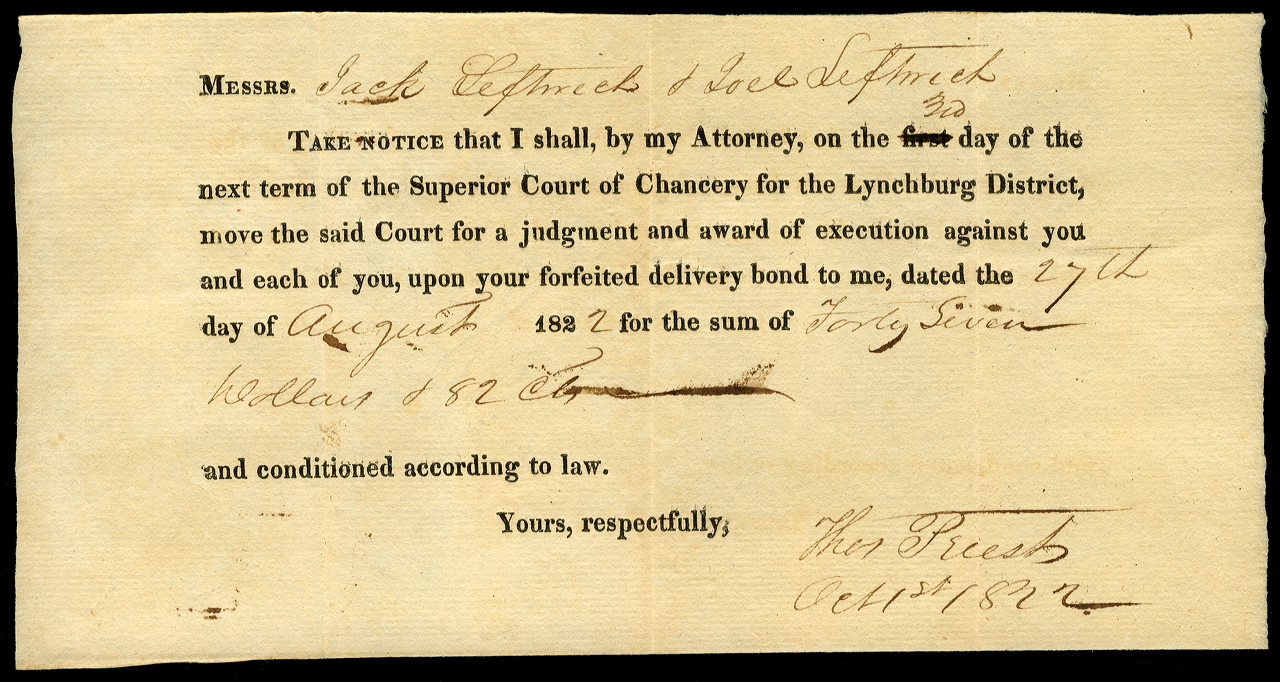 MESSRS. Jack Leftwich & Joel Leftwich
3rd
TAKE NOTICE that I shall, by my Attorney, on the first day of the
next term of the Superior Court of Chancery for the Lynchburg District,
move the said Court for a judgment and award of execution against you
and each of you, upon your forfeited delivery bond to me, dated the 27th
day of August 1822 for the sum of Forty Seven
Dollars & 82 Cts
and conditioned according to law.
Yours, respectfully,
Thos Priest
Oct 1st 1822